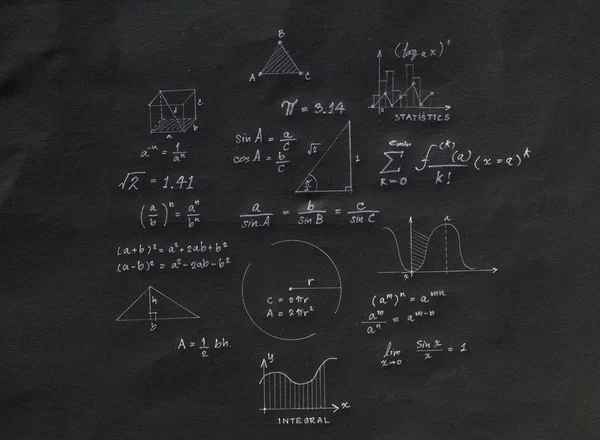 B
A C
(log a x)'
STATISTICS
π = 3.14
c
d
a b
a⁻ⁿ = 1/aⁿ
sin A = a/c
cos A = b/c
√2 1
π/4
√2 = 1.41
Σ f⁽ᵏ⁾(a)/k! (x = a)ᵏ
K=0
(a/b)ⁿ = aⁿ/bⁿ
a/sin A = b/sin B = c/sin C
a
x
(a+b)² = a²+2ab+b²
(a-b)² = a²-2ab-b²
r
C = 2πr
A = 2πr²
h
b
(aᵐ)ⁿ = aᵐⁿ
aᵐ/aⁿ = aᵐ⁻ⁿ
A = 1/2 bh.
lim x→0 sin x/x = 1
y
x
INTEGRAL